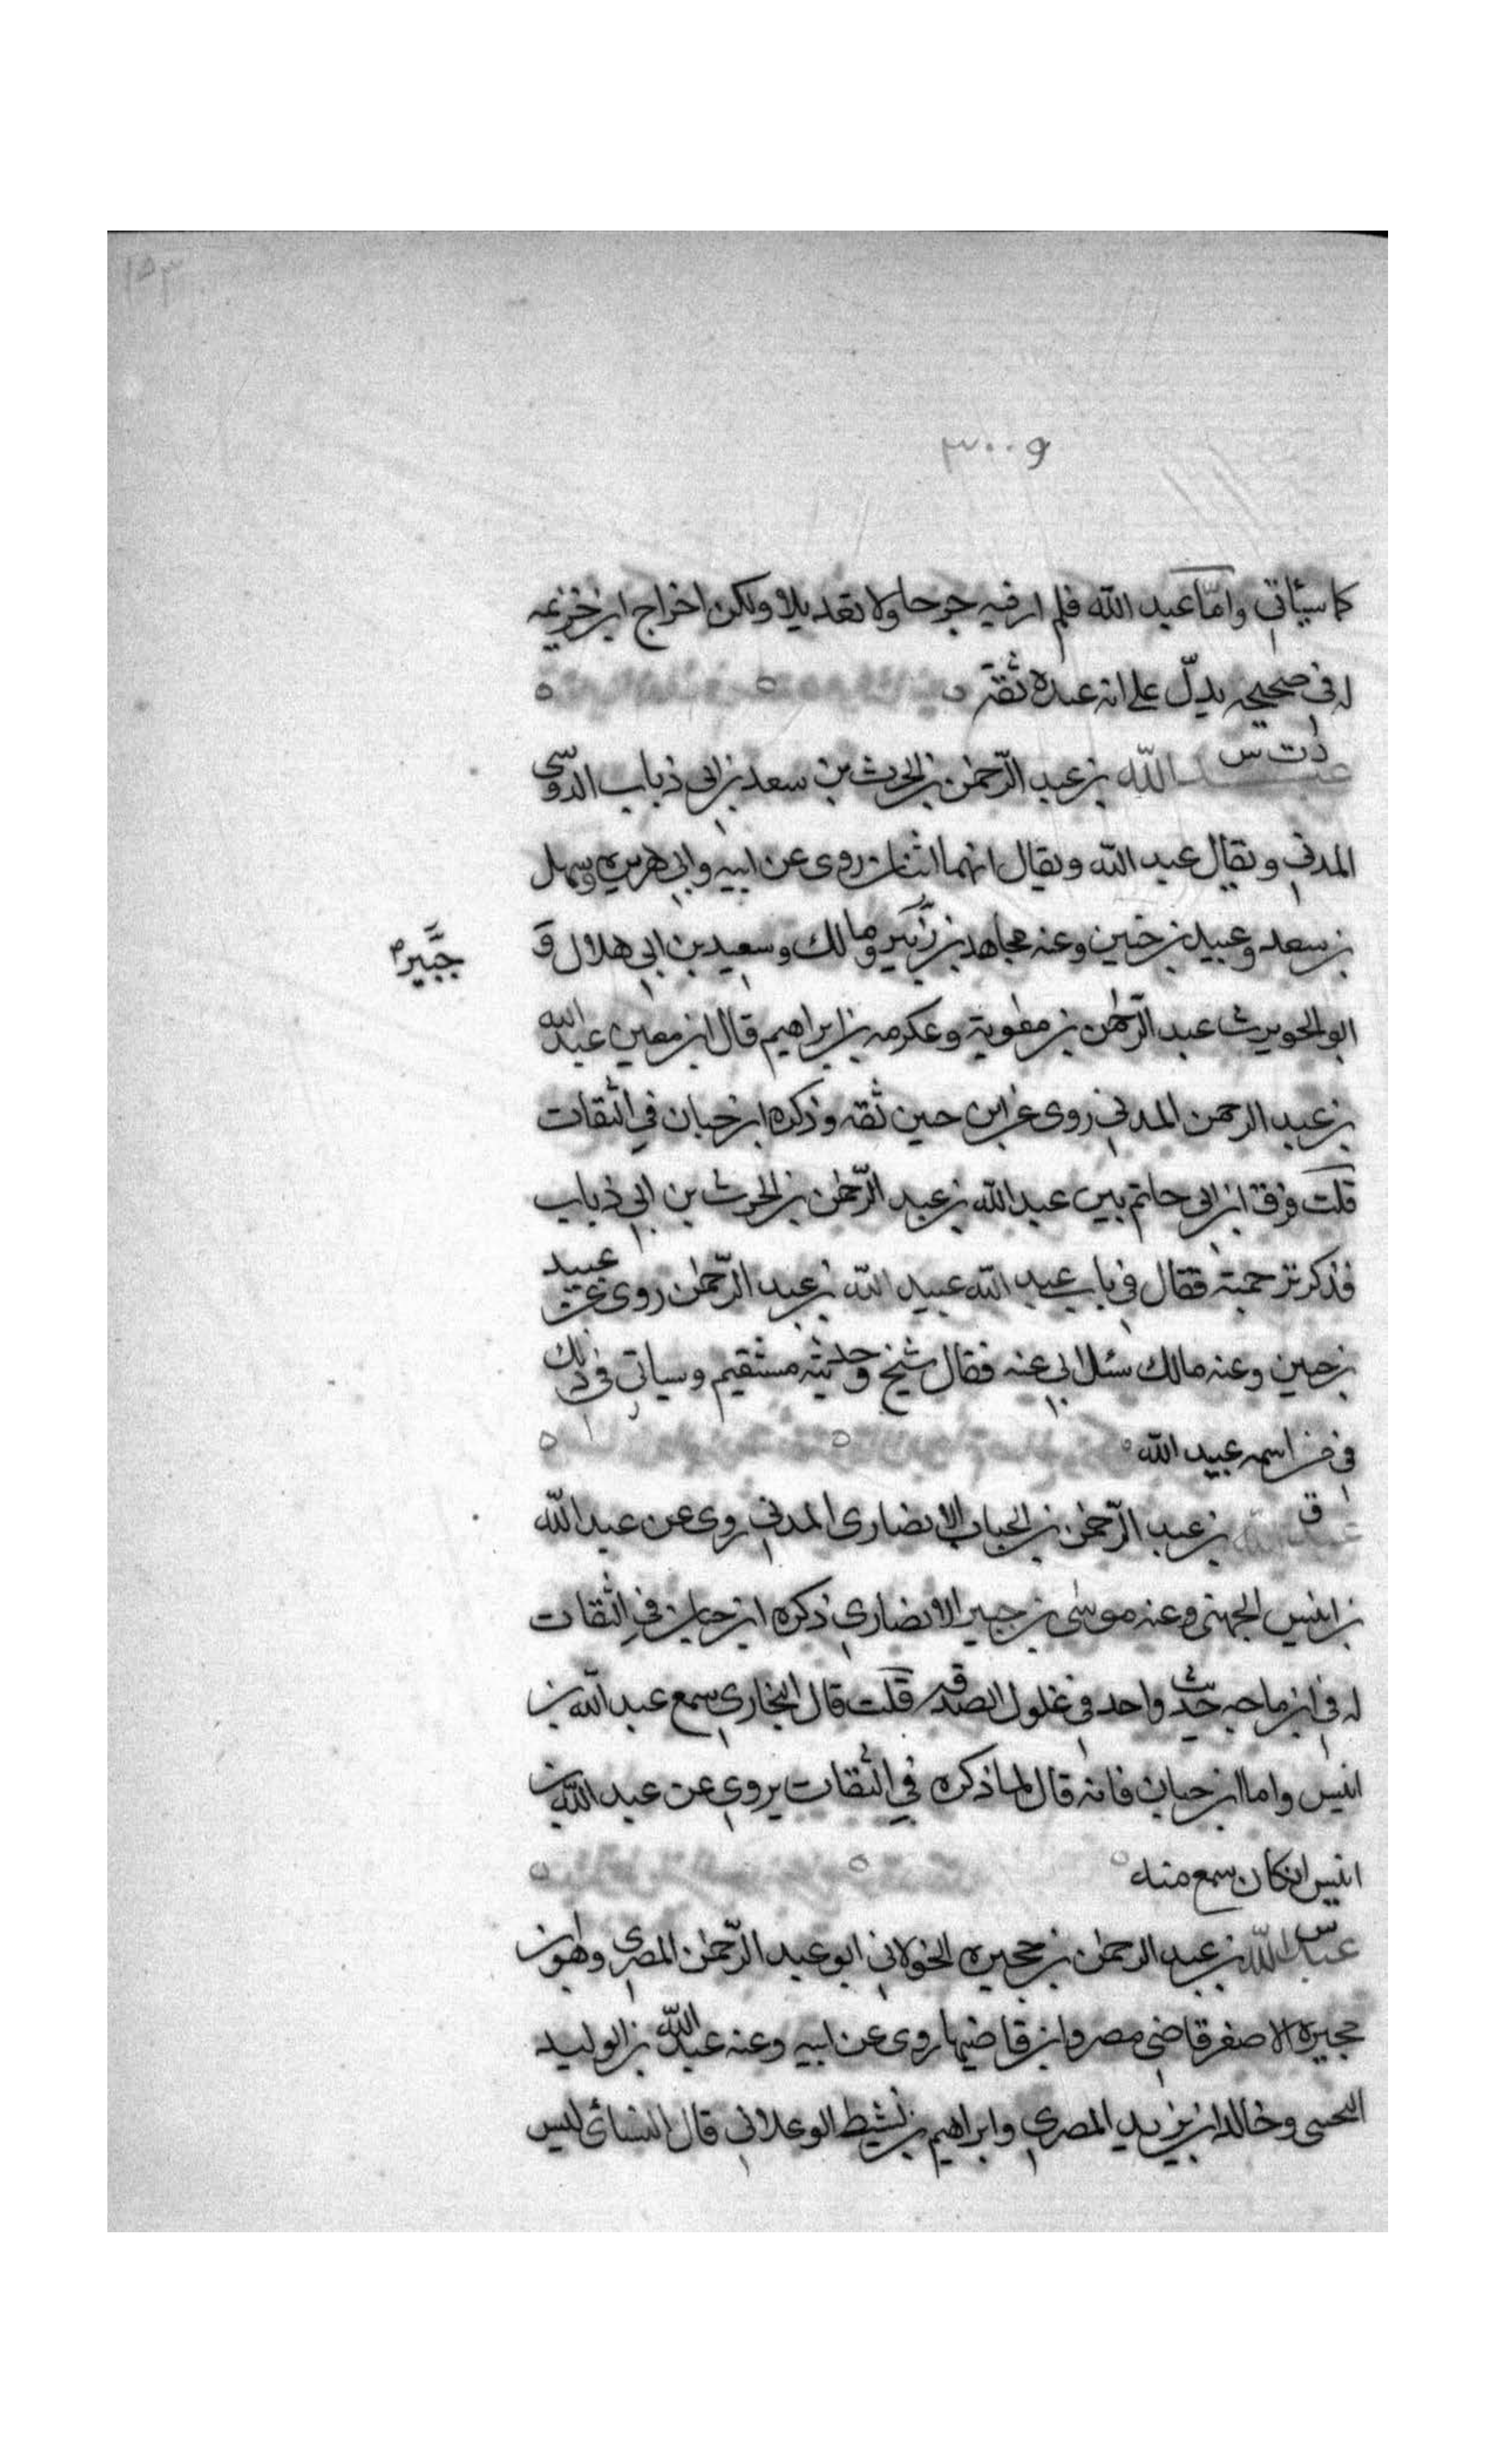 ١٥٣
٣٠٠و
كما سيأتي وامّا عبد الله فلم ار فيه جرحا ولا تعديلا ولكن اخراج ابن خزيمه
له في صحيحه يدلّ على انه عبده ثقة
د ت س
عبد الله بن عبد الرّحمن بن الحرث بن سعد بن ابي ذباب الدوسي
المدني ويقال عبيد الله ويقال انهما اثنان روى عن ابيه وابي هريره وسهل
بن سعد وعبيد بن حنين وعنه مجاهد بن ومالك وسعيد بن ابي هلال و
جَبَّير
ابو الحويرث عبد الرّحمن بن معوية وعكرمه بن ابراهيم قال ابن معين عبد الله
بن عبد الرحمن المدني روى عن ابن حنين ثقه وذكره ابن حبان في الثقات
قلت فرق ابن ابي حاتم بين عبد الله بن عبد الرّحمن بن الحرث بن ابي ذباب
فذكر ترجمته فقال في باب عبيد الله عبيد الله بن عبد الرّحمن روى عن عبيد
بن حنين وعنه مالك سئل ابي عنه فقال شيخ وحديثه مستقيم وسياتي في ذلك
في من اسمه عبيد الله
ق
عبد الله بن عبد الرّحمن بن الحباب الانصارى المدني روى عن عبد الله
بن انيس الجهنى وعنه موسى بن جبير الانصاري ذكره ابن حبان في الثقات
له في ابن ماجه حديث واحد في غلول الصدقه قلت قال البخاري سمع عبد الله بن
انيس واما ابن حبان فانه قال لما ذكره في الثقات يروي عن عبد الله بن
انيس ان كان سمع منه
س
عبد الله بن عبد الرحمن بن حجيره الخولاني ابو عبد الرّحمن المصري وهو بن
حجيره الاصغر قاضي مصر وابن قاضيها روى عن ابيه وعنه عبد الله بن الوليد
وخالد ابن يزيد المصري وابراهيم بن نشيط الوعلاني قال النسائى ليس